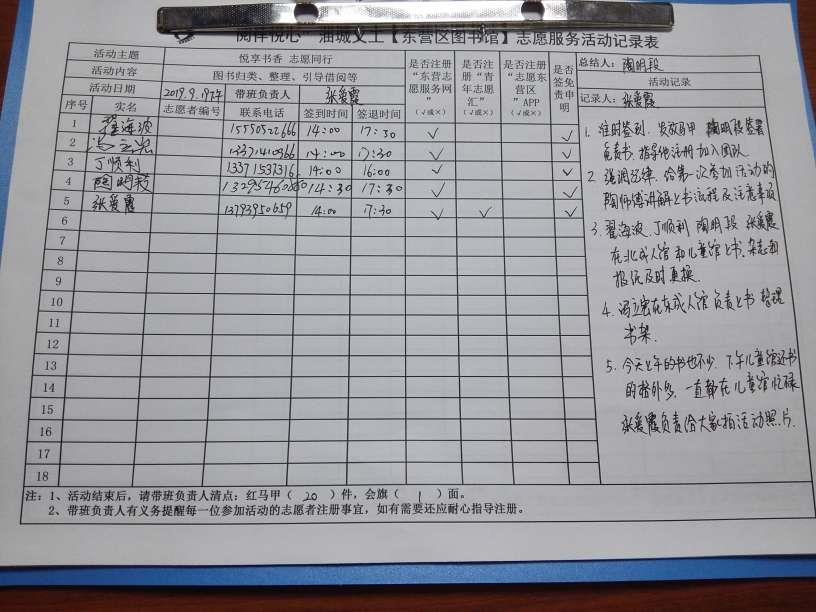 阅伴悦心 油城义工【东营区图书馆】志愿服务活动记录表
活动主题 悦享书香 志愿同行
活动内容 图书归类、整理、引导借阅等
活动日期 2019.9.19下午 带班负责人 张爱霞
序号 实名 志愿者编号 联系电话 签到时间 签退时间 是否注册“东营志愿服务网”(√或×) 是否注册“青年志愿汇”(√或×) 是否注册“志愿东营区”APP(√或×) 是否签免责申明
1 翟海波 1550522666 14:00 17:30 √ √
2 冯立宏 14:00 17:30 √ √
3 丁顺利 13371537316 14:00 16:00 √ √
4 陶明段 14:30 17:30 √ √
5 张爱霞 13793950659 14:00 17:30 √ √ √
6
7
8
9
10
11
12
13
14
15
16
17
18
总结人：陶明段
活动记录
记录人：张爱霞
1. 准时签到，发放马甲 陶明段签署
免责书，指导他注册加入团队
2 强调纪律，给第一次参加活动的
陶师傅讲解上书流程及注意事项
3. 翟海波、丁顺利 陶明段 张爱霞
在北成人馆和儿童馆上书、杂志和
报纸及时更换.
4. 冯立宏在东成人馆负责上书 整理
书架.
5. 今天上午的书也不少，下午儿童馆还书
的格外多，一直都在儿童馆忙碌
张爱霞负责给大家拍活动照片.
注：1、活动结束后，请带班负责人清点：红马甲（ 20 ）件，会旗（ 1 ）面。
2、带班负责人有义务提醒每一位参加活动的志愿者注册事宜，如有需要还应耐心指导注册。